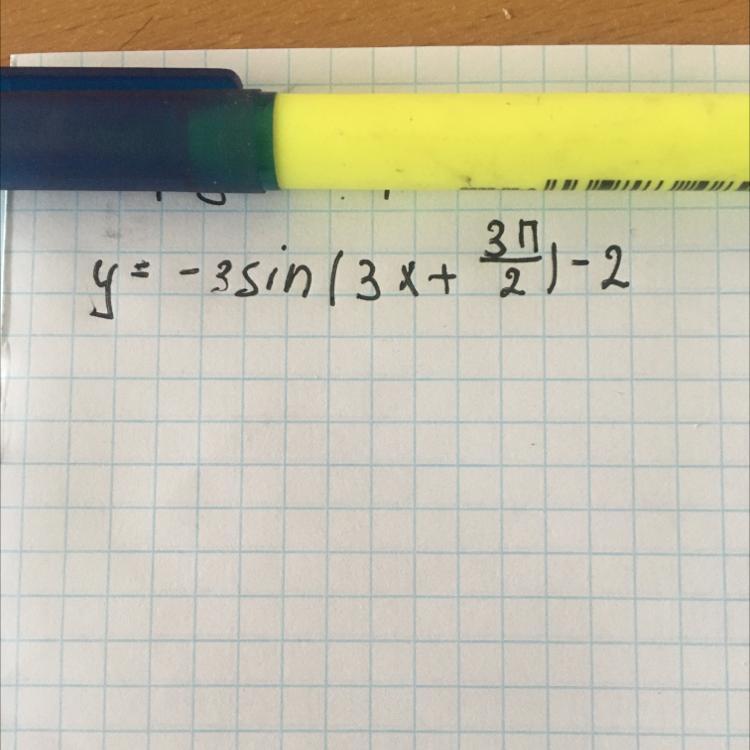 y = -3sin(3x + 3π/2) - 2